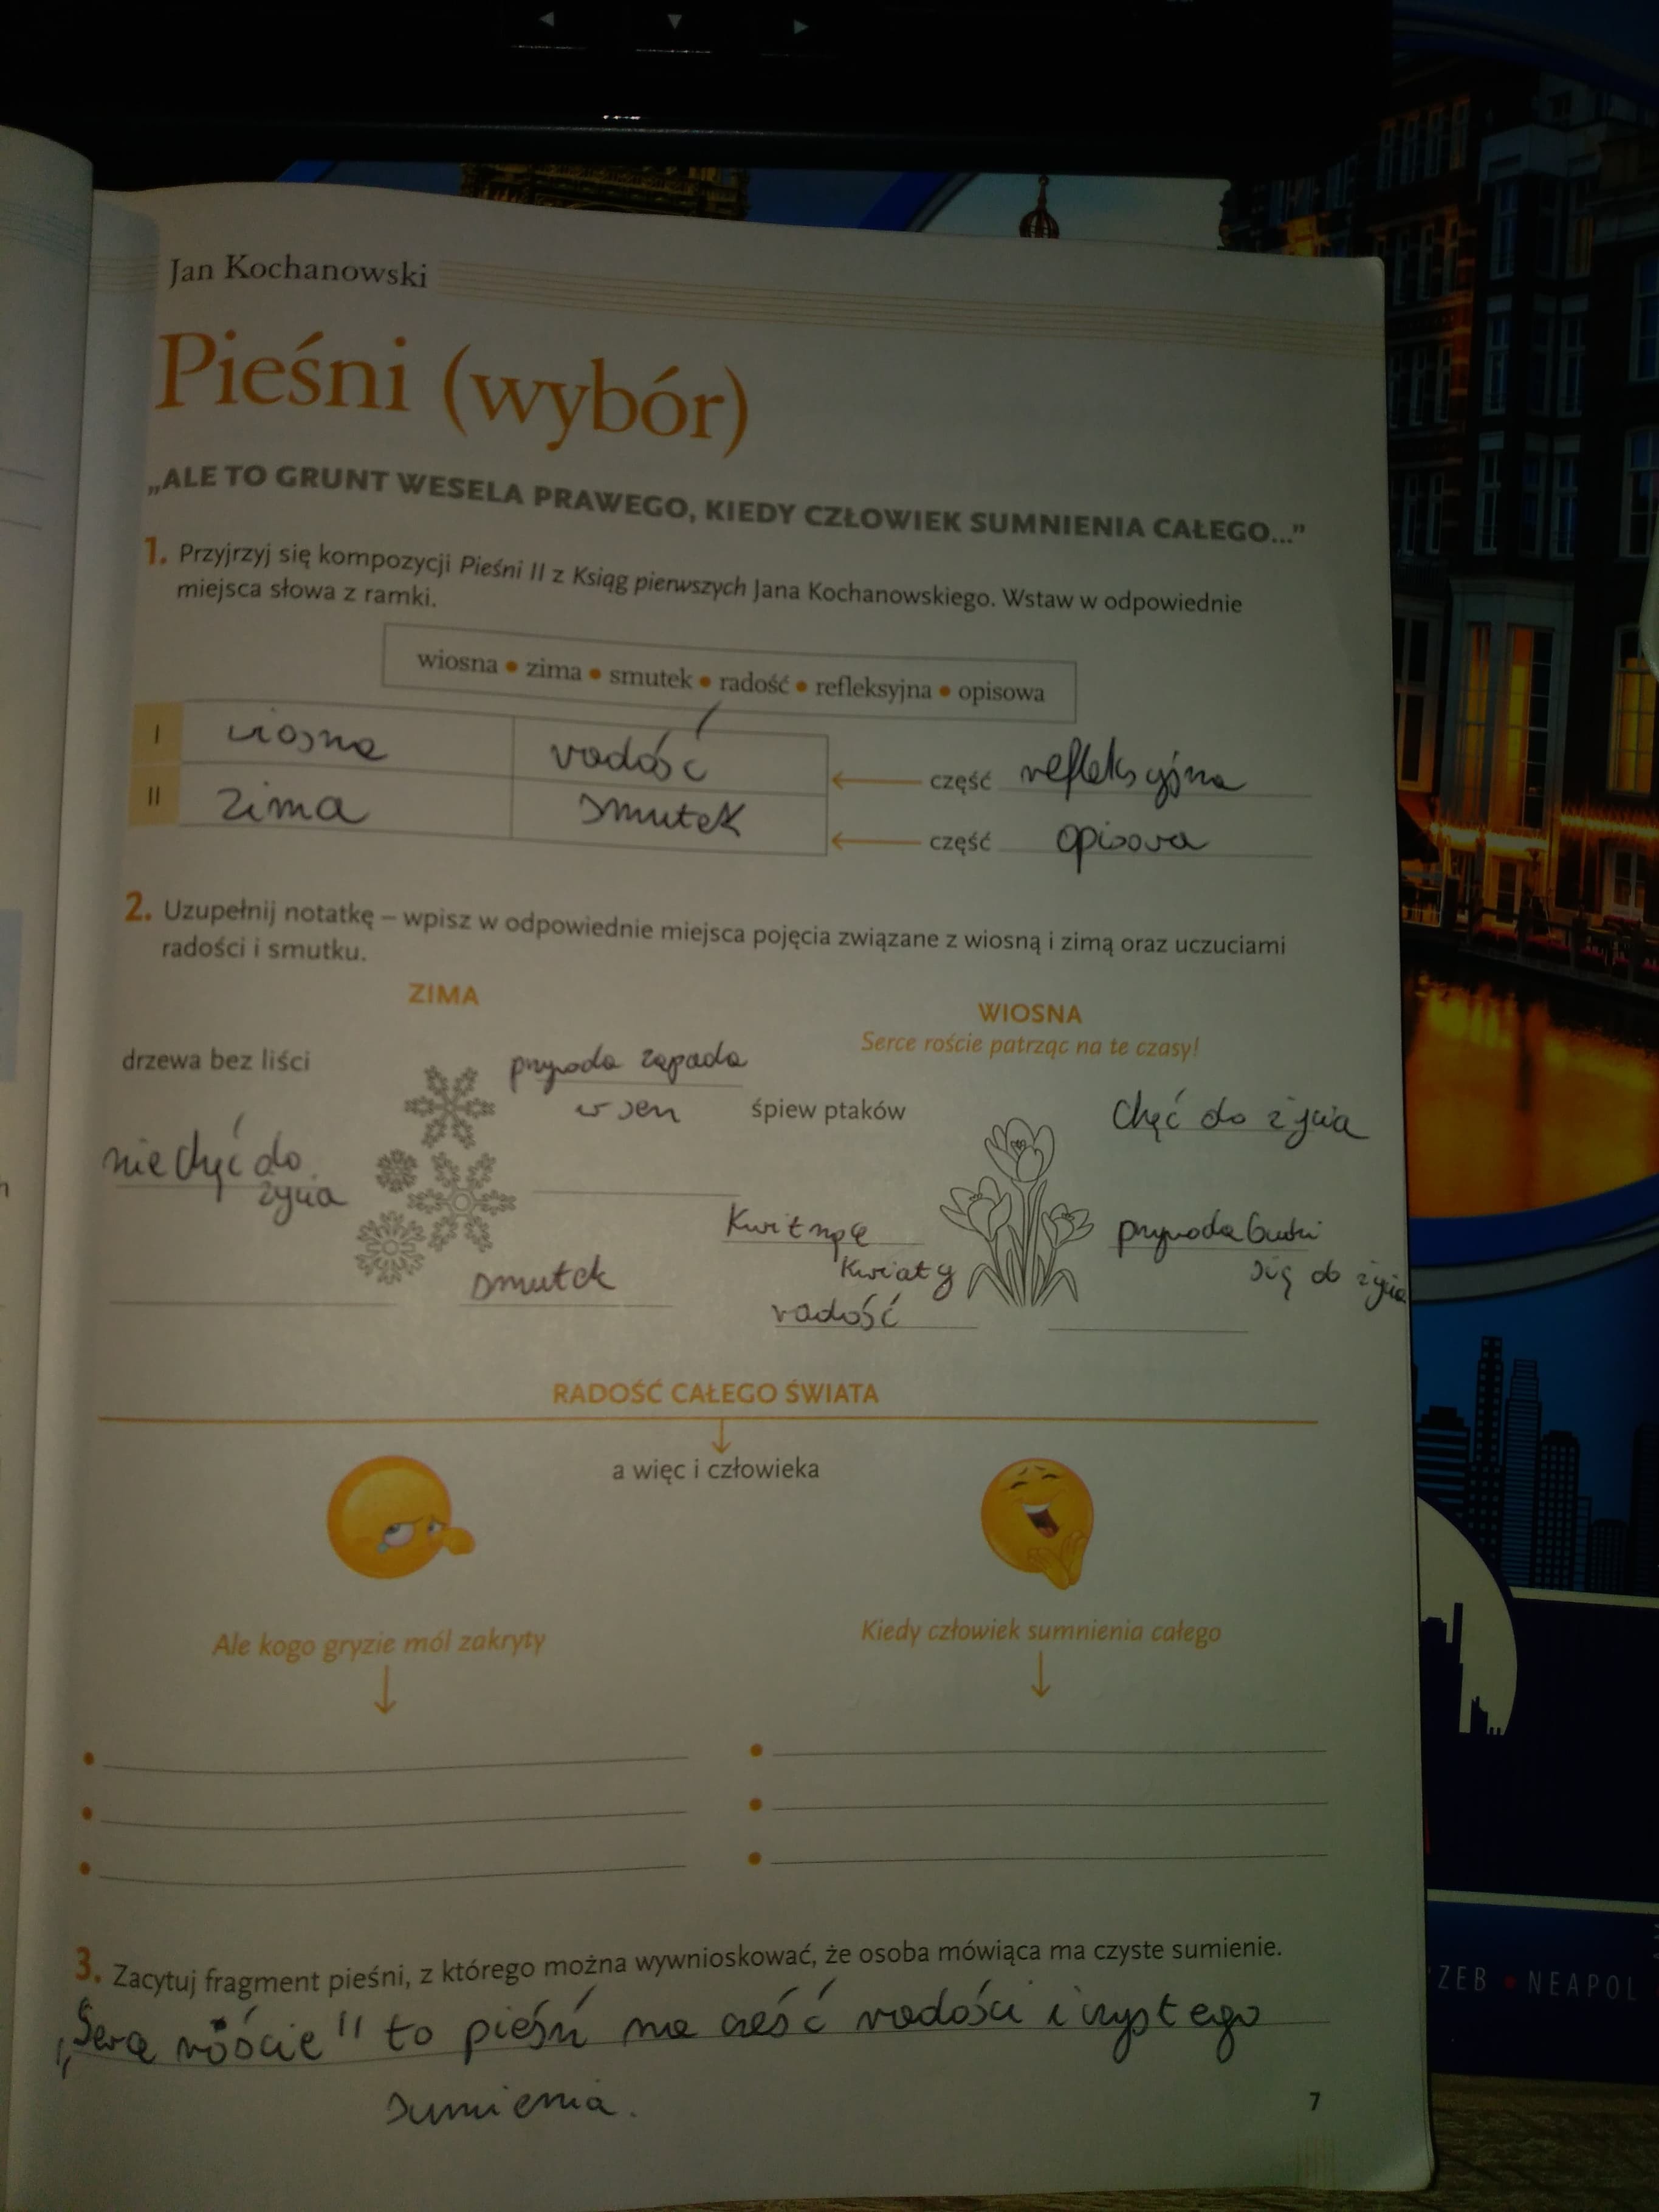 Jan Kochanowski
Pieśni (wybór)
„ALE TO GRUNT WESELA PRAWEGO, KIEDY CZŁOWIEK SUMNIENIA CAŁEGO...”
1. Przyjrzyj się kompozycji Pieśni II z Ksiąg pierwszych Jana Kochanowskiego. Wstaw w odpowiednie
miejsca słowa z ramki.
wiosna • zima • smutek • radość • refleksyjna • opisowa
I wiosna radość część refleksyjna
II zima smutek część opisowa
2. Uzupełnij notatkę – wpisz w odpowiednie miejsca pojęcia związane z wiosną i zimą oraz uczuciami
radości i smutku.
ZIMA
drzewa bez liści
przyroda zapada
w sen
nie chęć do
życia
smutek
WIOSNA
Serce roście patrząc na te czasy!
śpiew ptaków
Chęć do życia
Kwitnącę
Kwiaty
przyroda budzi
się do życia
radość
RADOŚĆ CAŁEGO ŚWIATA
a więc i człowieka
Ale kogo gryzie mól zakryty
Kiedy człowiek sumnienia całego
3. Zacytuj fragment pieśni, z którego można wywnioskować, że osoba mówiąca ma czyste sumienie.
„Serce roście" to pieśń na cześć radości i czystego
sumienia.
7
ZEB • NEAPOL